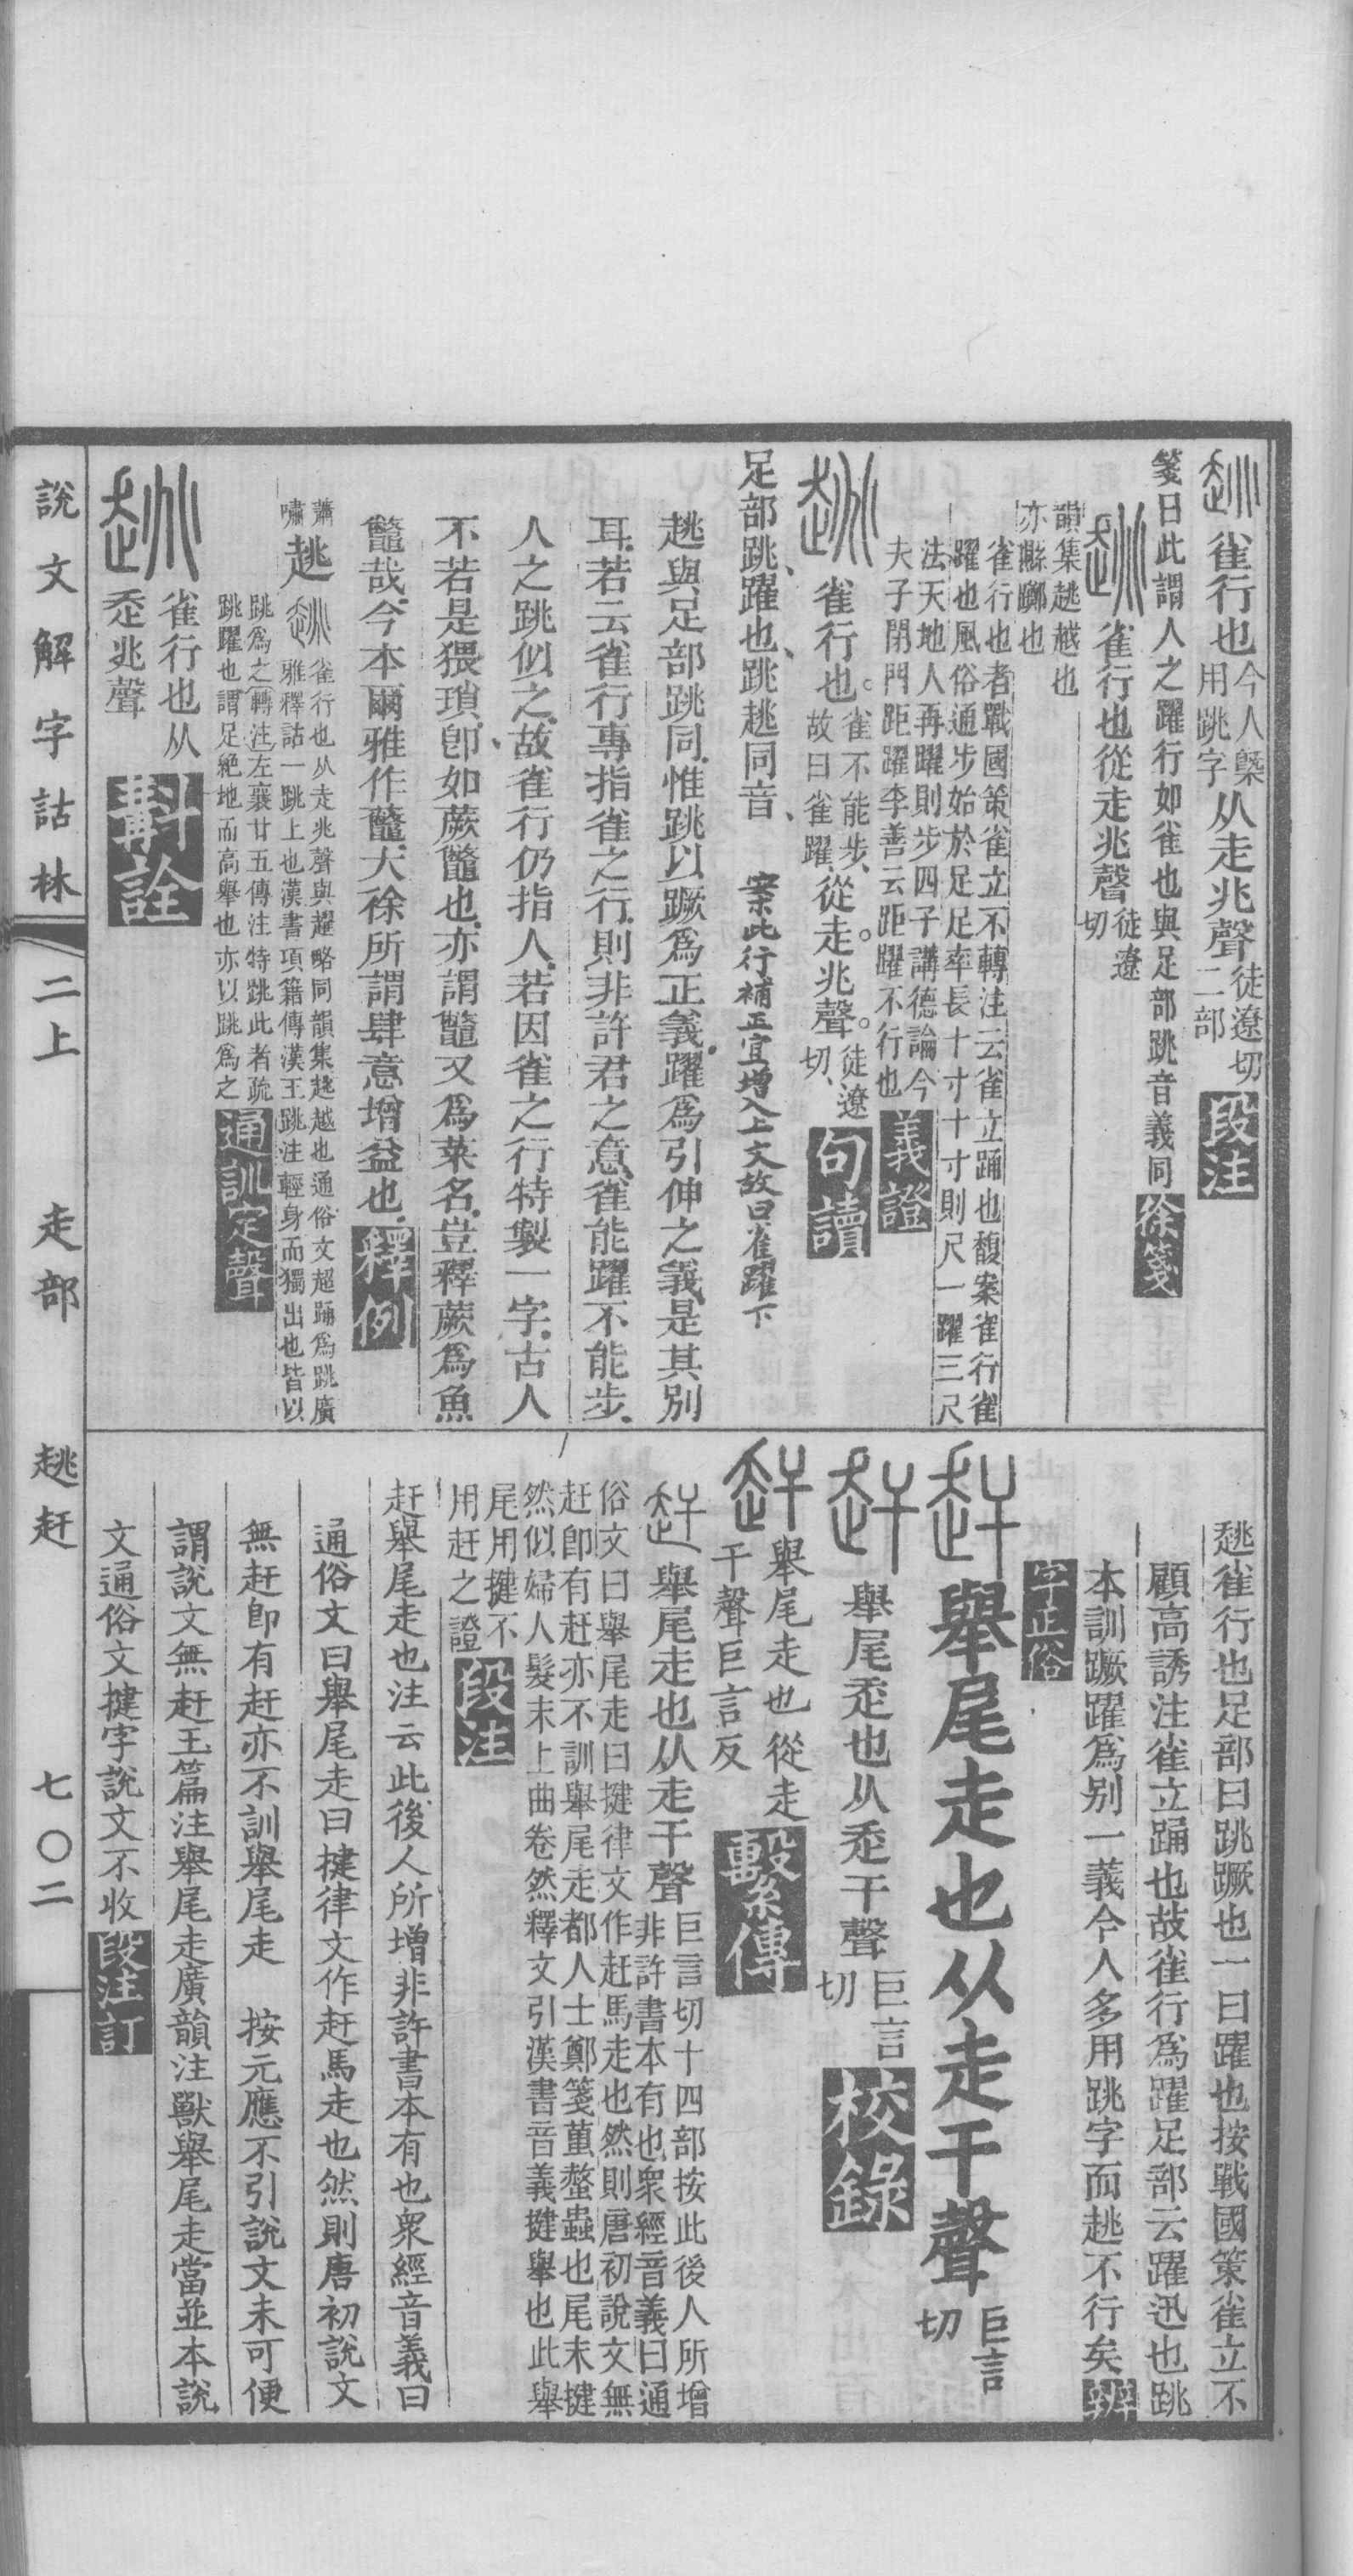 雀行也今人槩用跳字从走兆聲徒遼切二部段注
箋曰此謂人之躍行如雀也與足部跳音義同徐箋
雀行也從走兆聲徒遼切
韻集趒越也
亦繇躑也
雀行也者戰國策雀立不轉注云雀立踊也馥案雀行雀
躍也風俗通步始於足足率長十寸十寸則尺一躍三尺
法天地人再躍則步四子講德論今
夫子閉門距躍李善云距躍不行也義證
雀行也。雀不能步、故曰雀躍、從走兆聲。徒遼切、句讀
足部跳、躍也、跳趒同音、 案此行補正宜增入上文故曰雀躍下
趒與足部跳同、惟跳以蹶爲正義、躍爲引伸之義、是其別
耳、若云雀行專指雀之行、則非許君之意、雀能躍不能步、
人之跳似之、故雀行仍指人、若因雀之行特製一字、古人
不若是猥瑣、卽如蕨虌也、亦謂虌又爲菜名、豈釋蕨爲魚
鼈哉、今本爾雅作虌、大徐所謂肆意增益也、釋例
蕭嘯趒雀行也从走兆聲與趯略同韻集趒越也通俗文超踊爲跳廣
雅釋詁一跳上也漢書項籍傳漢王跳注輕身而獨出也皆以
跳爲之轉注左襄廿五傳注特跳此者疏
跳躍也謂足絕地而高舉也亦以跳爲之通訓定聲
雀行也从
兆聲斠詮
趒雀行也足部曰跳蹶也一曰躍也按戰國策雀立不
顧高誘注雀立踊也故雀行爲躍足部云躍迅也跳
本訓蹶躍爲别一義今人多用跳字而趒不行矣辨
字正俗
舉尾走也从走干聲巨言切
舉尾也从干聲巨言切校錄
舉尾走也從走
干聲巨言反繫傳
舉尾走也从走干聲巨言切十四部按此後人所增
非許書本有也衆經音義曰通
俗文曰舉尾走曰揵律文作赶馬走也然則唐初說文無
赶卽有赶亦不訓舉尾走都人士鄭箋蠆螫蟲也尾末揵
然似婦人髮末上曲卷然釋文引漢書音義揵舉也此舉
尾用揵不
用赶之證段注
赶舉尾走也注云此後人所增非許書本有也衆經音義曰
通俗文曰舉尾走曰揵律文作赶馬走也然則唐初說文
無赶卽有赶亦不訓舉尾走 按元應不引說文未可便
謂說文無赶玉篇注舉尾走廣韻注獸舉尾走當並本說
文通俗文揵字說文不收段注訂
說文解字詁林 二上 走部 趒赶 七〇二